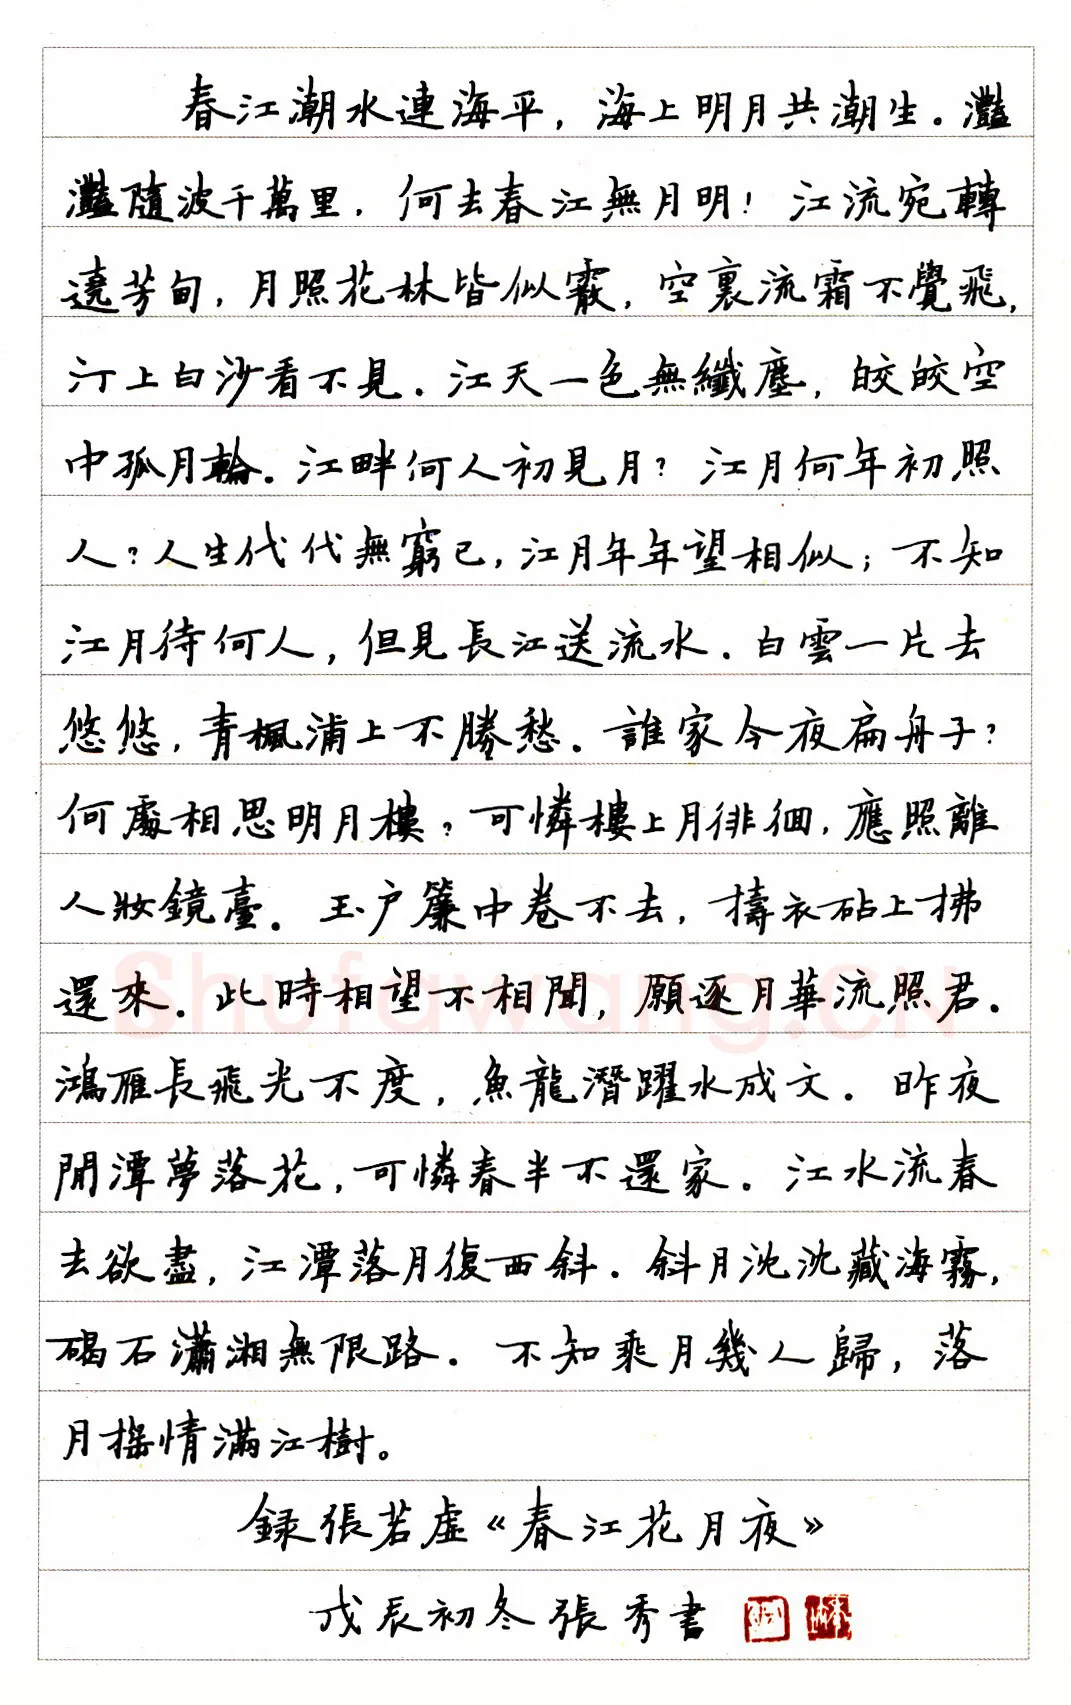 春江潮水連海平，海上明月共潮生。灩
灩隨波千萬里，何去春江無月明！江流宛轉
遶芳甸，月照花林皆似霰，空裏流霜不覺飛，
汀上白沙看不見。江天一色無纖塵，皎皎空
中孤月輪。江畔何人初見月？江月何年初照
人？人生代代無窮已，江月年年望相似；不知
江月待何人，但見長江送流水。白雲一片去
悠悠，青楓浦上不勝愁。誰家今夜扁舟子？
何處相思明月樓？可憐樓上月徘徊，應照離
人妝鏡臺。玉户簾中卷不去，擣衣砧上拂
還來。此時相望不相聞，願逐月華流照君。
鴻雁長飛光不度，魚龍潛躍水成文。昨夜
閒潭夢落花，可憐春半不還家。江水流春
去欲盡，江潭落月復西斜。斜月沈沈藏海霧，
碣石瀟湘無限路。不知乘月幾人歸，落
月摇情滿江樹。
録張若虛《春江花月夜》
戊辰初冬張秀書
Shufawang.CN